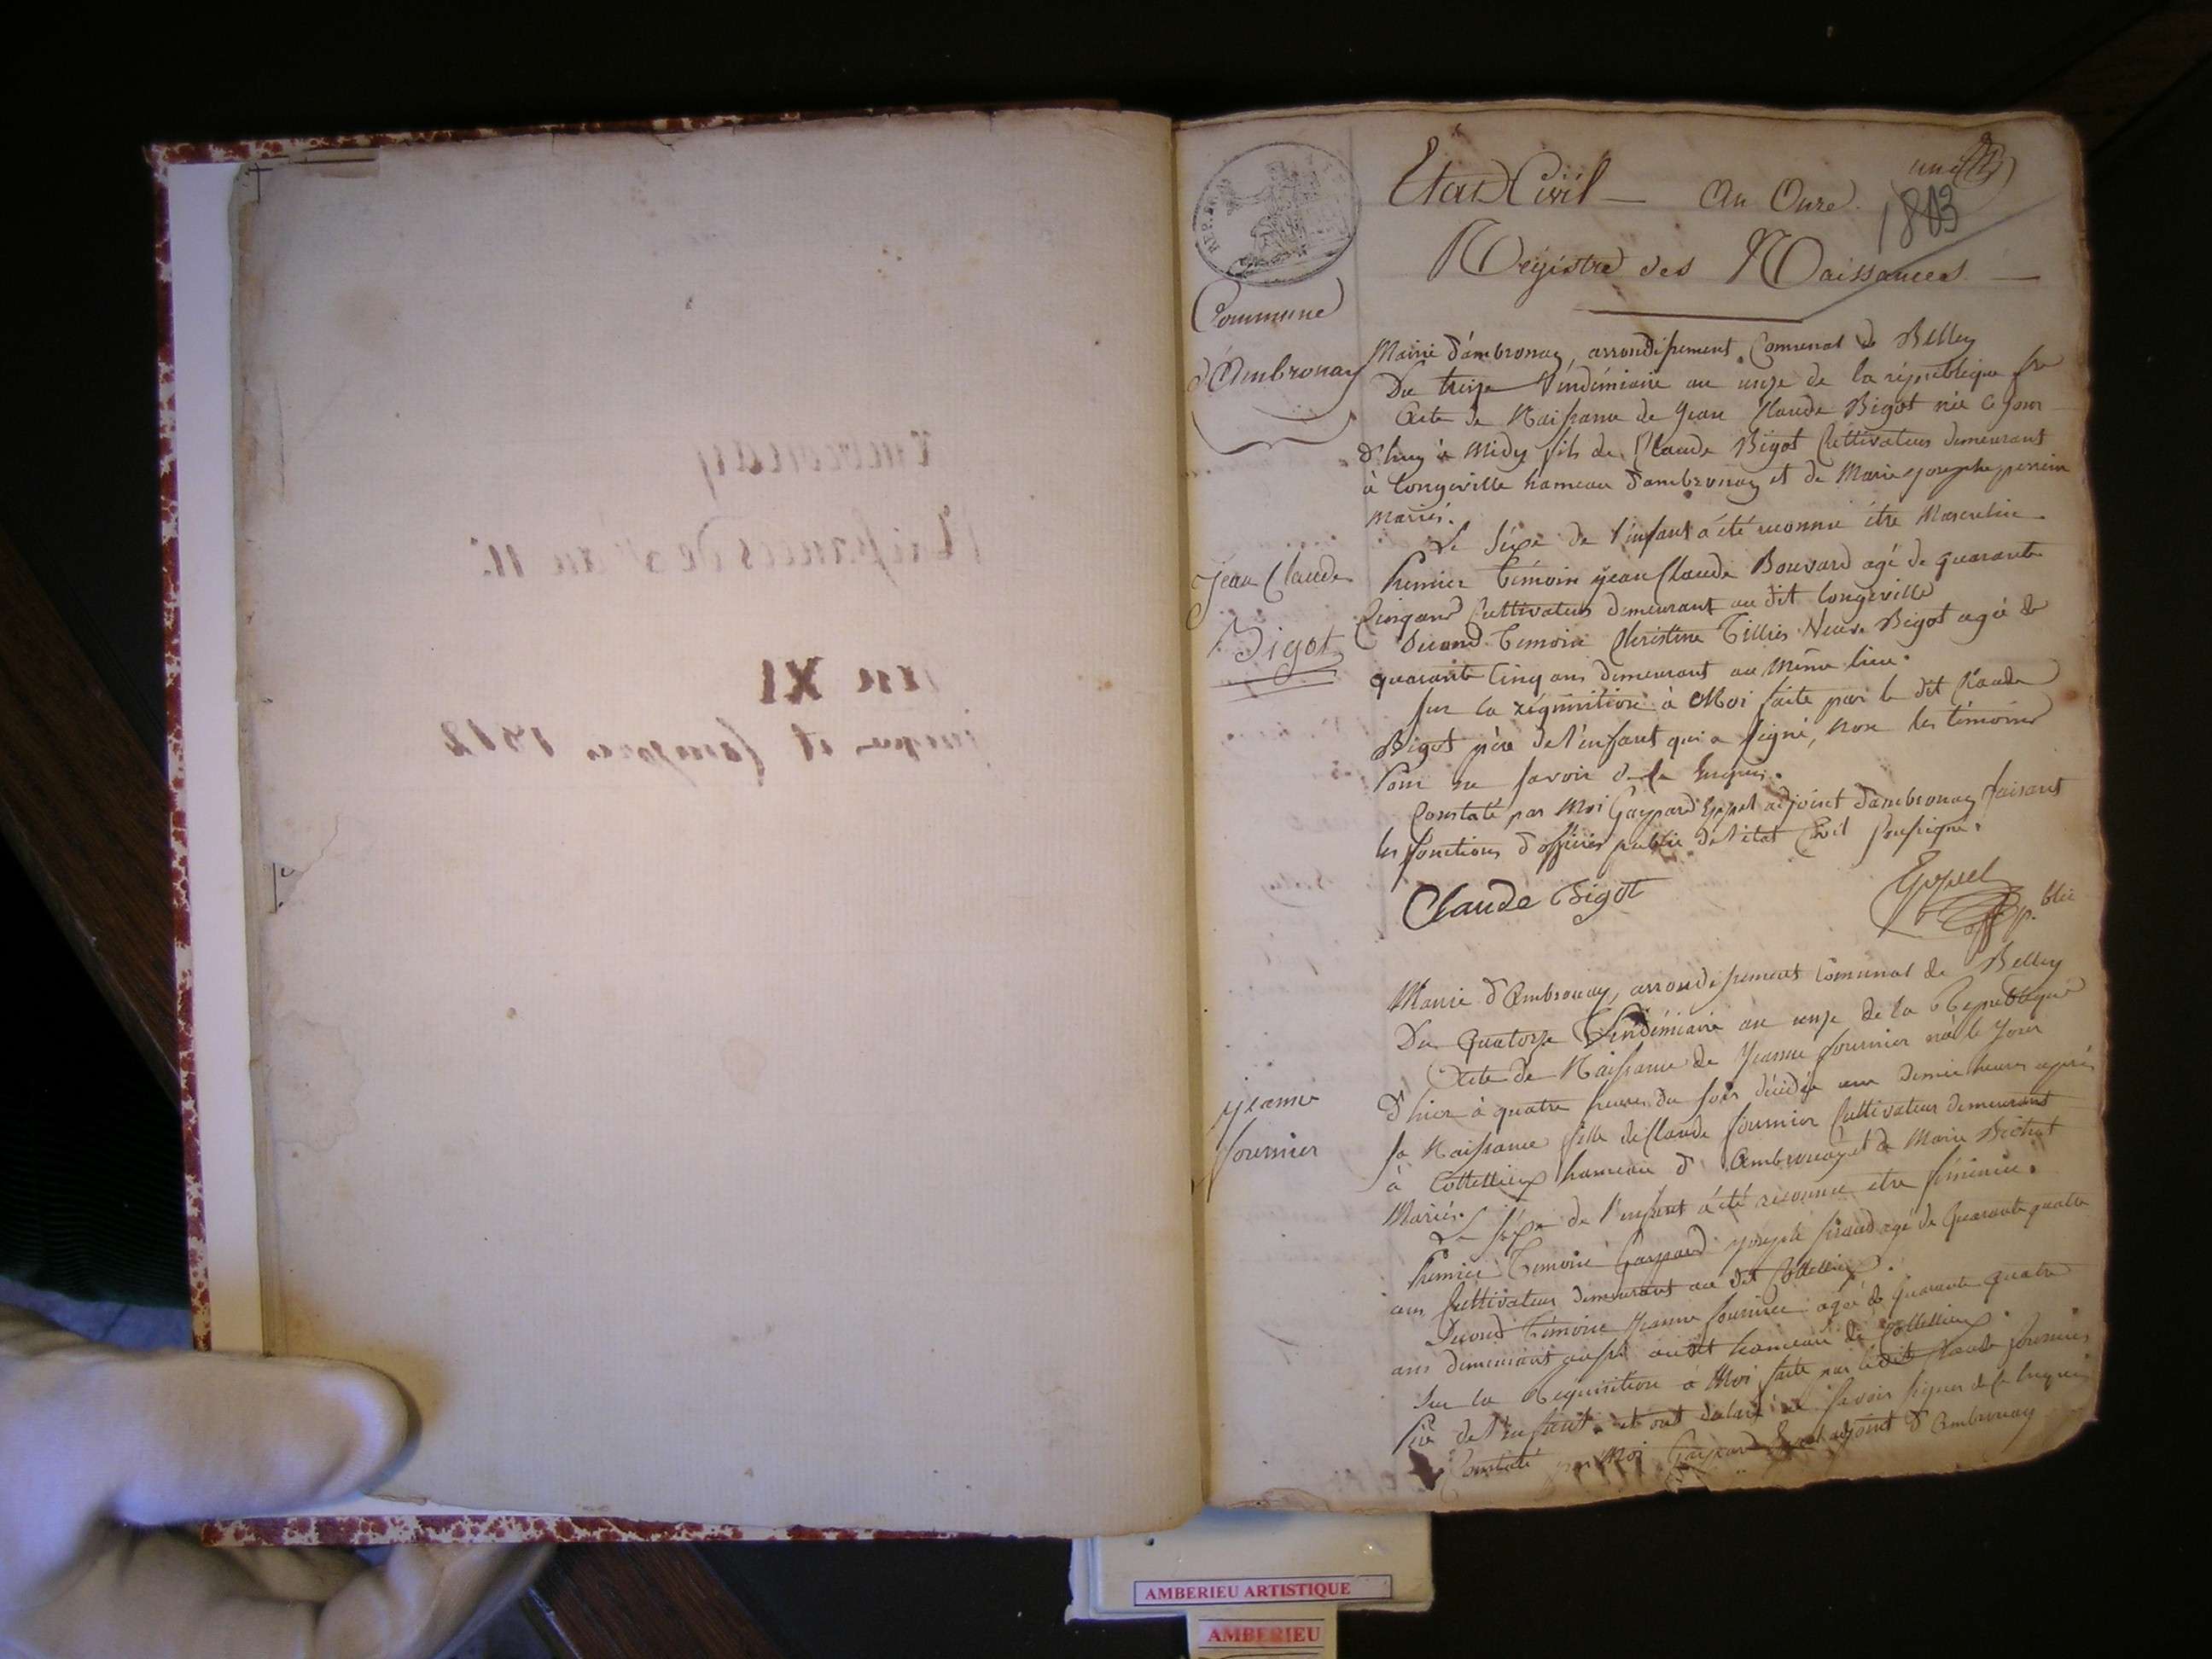 Ambronay
Naissances de l'an 11.
an XI
jusqu et compris 1812
REP.
une
1803
Etat Civil — An Onze
Registre des Naissances —
Commune
d'Ambronay
Mairie d'ambronay, arrondissement Comunal de Belley
Du treize Vendémiaire an onze de la république fse
Acte de Naissance de Jean Claude Bigot née ce jour
d'huy à Midy fils de Claude Bigot Cultivateur demeurant
à Longeville hameau d'ambronay et de Marie josephe perrin
mariés.
Le Sexe de l'enfant à été reconnu être Masculin
Jean Claude
Bigot
Premier témoin jean Claude Bouvard agé de quarante
Cinq ans Cultivateur demeurant au dit longeville
Second temoin Christine Veuve Bigot agée de
quarante Cinq ans demeurant au même lieu.
sur la réquisition à Moi faite par le dit Claude
Bigot père de l'enfant qui a signé, non les témoins
Pour ne savoir de ce Enquis.
Constaté par Moi Gaspard Eppel adjoint d'ambronay faisant
les fonctions d'officier public de l'état Civil soussigné.
Claude Bigot
Eppel
off p. blic
Mairie d'Ambronay, arrondissement Comunal de Belley
Du Quatorze Vendémiaire an onze de la République
Acte de Naissance de Jeanne fournier née le Jour
d'hier à quatre heures du soir décédée une demie heure après
sa Naissance fille de Claude fournier Cultivateur demeurant
Jeanne
fournier
à Cottellieux hameau d'Ambronay et de Marie Bichat
Mariés.
Le sexe de l'enfant à été reconnu etre féminin.
Premier Temoin Gaspard joseph agé de Quarante quatre
ans Cultivateur demeurant au dit Cottellieux.
Second Temoin Jeanne fournier agée de Quarante quatre
ans demeurant aussi audit hameau de Cottellieux.
Sur la Requisition à Moi faite par le dit Claude fournier
Père de l'enfant et ont déclaré ne savoir signer de ce Enquis
Constaté par Moi Gaspard Eppel adjoint d'Ambronay
AMBERIEU ARTISTIQUE
AMBERIEU